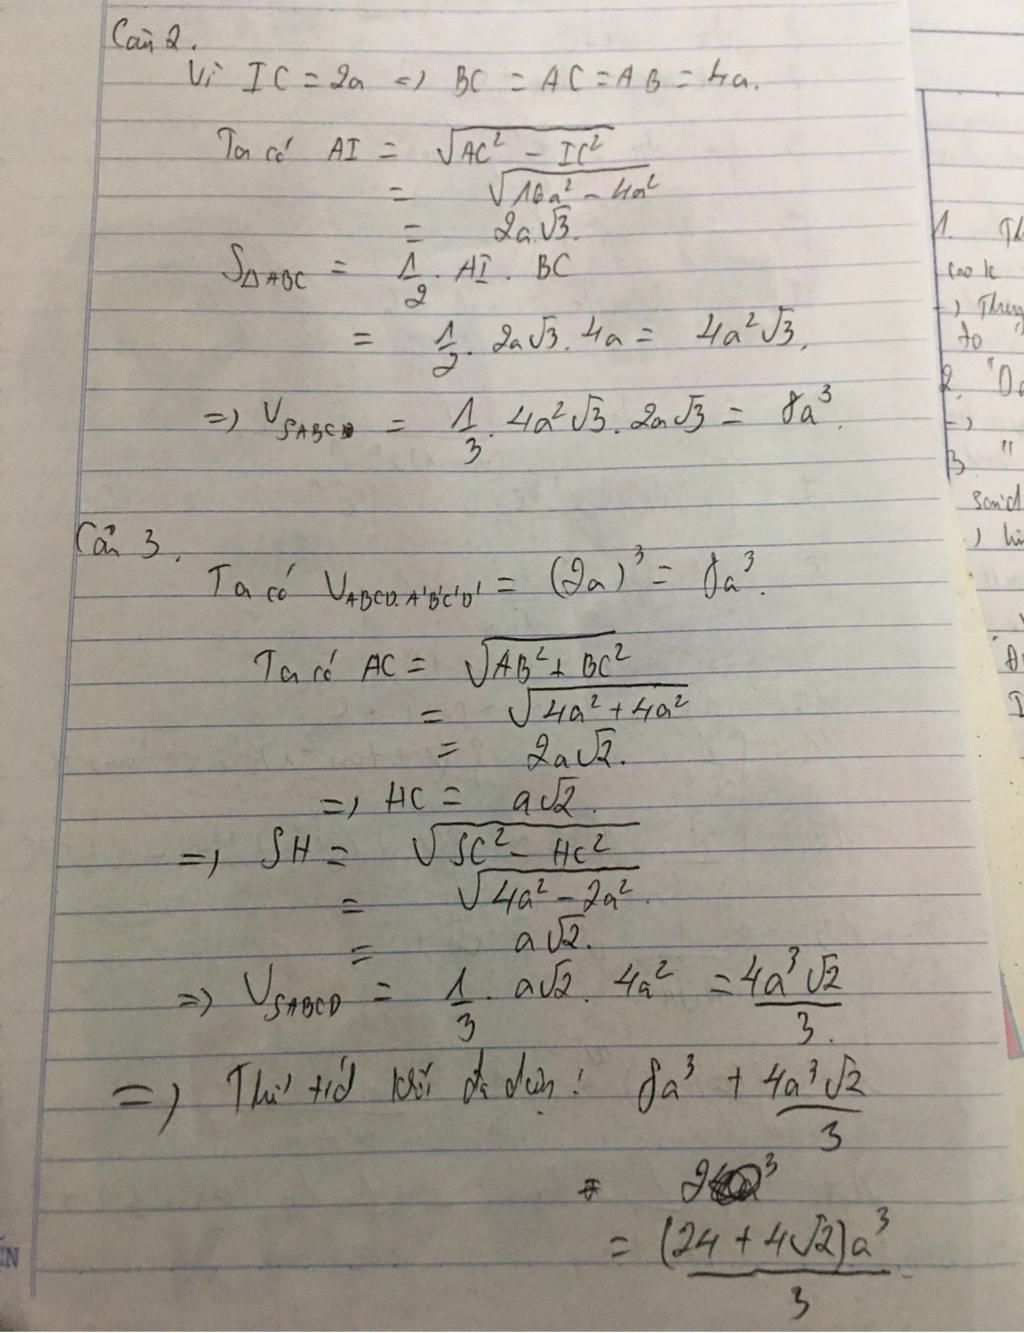 Câu 2.
Vì IC = 2a => BC = AC = AB = 4a.
Ta có AI = √(AC² - IC²)
= √(16a² - 4a²)
= 2a√3.
S△ABC = 1/2 . AI . BC
= 1/2 . 2a√3 . 4a = 4a²√3.
=> V_SABC = 1/3 . 4a²√3 . 2a√3 = 8a³.
Câu 3.
Ta có V_ABCD.A'B'C'D' = (2a)³ = 8a³.
Ta có AC = √(AB² + BC²)
= √(4a² + 4a²)
= 2a√2.
=> HC = a√2.
=> SH = √(SC² - HC²)
= √(4a² - 2a²)
= a√2.
=> V_SABCD = 1/3 . a√2 . 4a² = 4a³√2/3.
=> Thể tích khối đa diện: 8a³ + 4a³√2/3
= (24 + 4√2)a³/3
1. Th
cao k
-) Thuy
to
2. "
-)
3. "